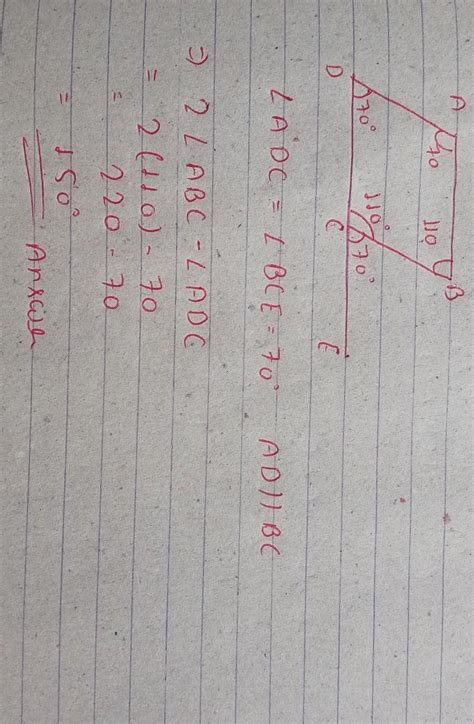 A B
70 110
70° 110° 70°
D C E
∠ADC = ∠BCE = 70° AD||BC
⇒ 2∠ABC - ∠ADC
= 2(110) - 70
= 220 - 70
= 150° Answer